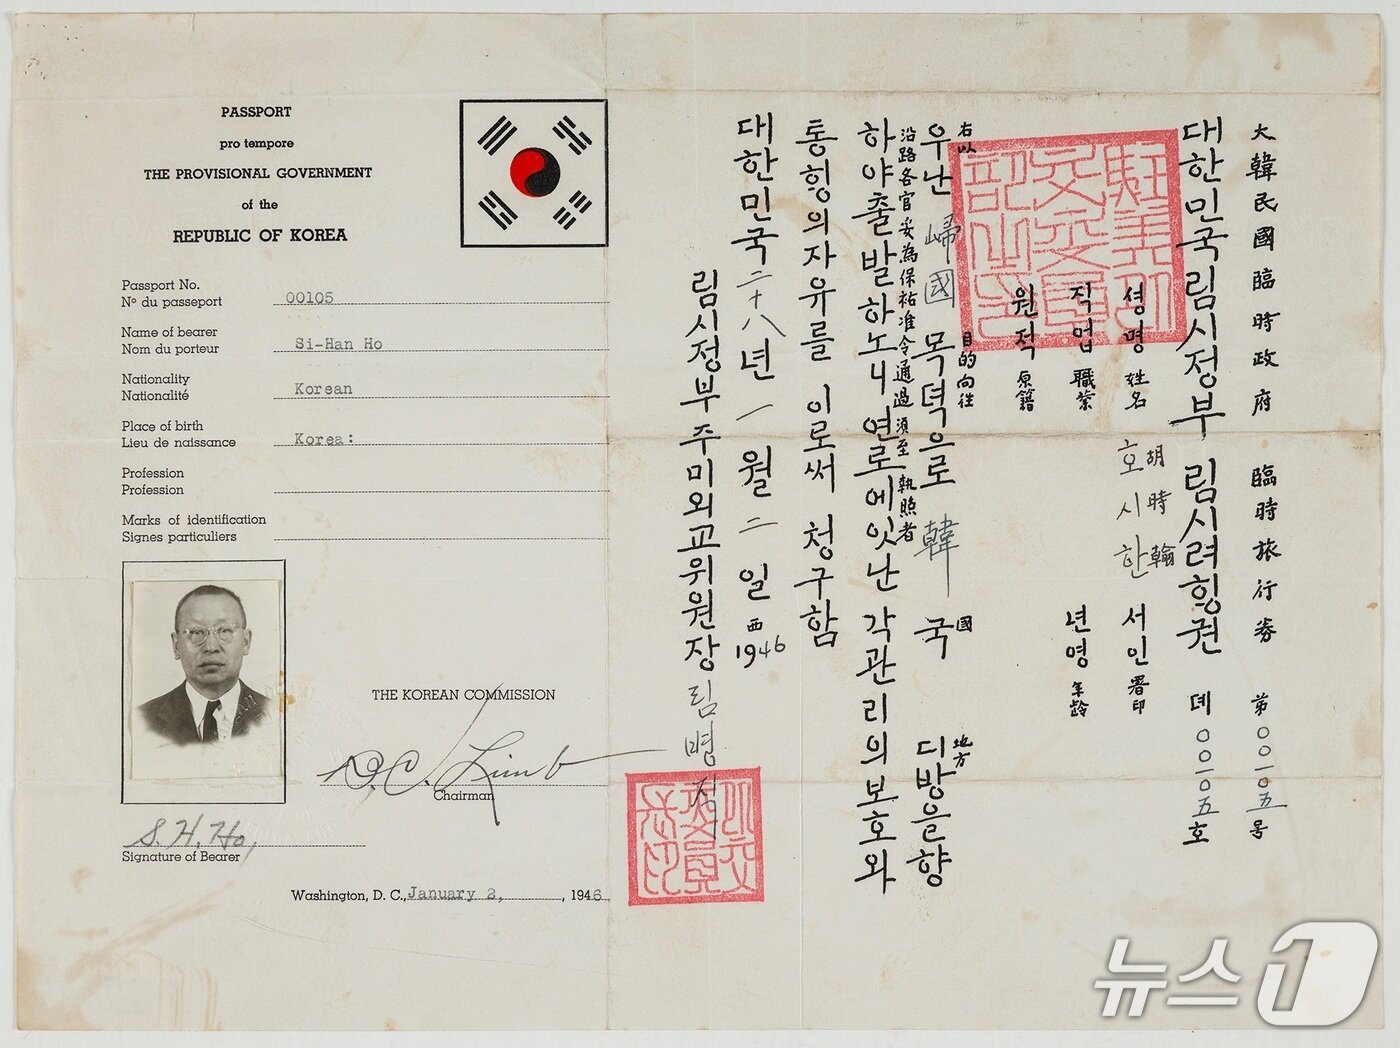 PASSPORT
pro tempore
THE PROVISIONAL GOVERNMENT
of the
REPUBLIC OF KOREA
Passport No.
Nº du passeport 00105
Name of bearer
Nom du porteur Si-Han Ho
Nationality
Nationalité Korean
Place of birth
Lieu de naissance Korea:
Profession
Profession
Marks of identification
Signes particuliers
THE KOREAN COMMISSION
D.C. Limb
Chairman
S. H. Ho,
Signature of Bearer
Washington, D. C., January 2, , 1946
大韓民國臨時政府 臨時旅行券 第〇〇一〇五号
대한민국림시정부 림시려힝권 뎨〇〇一〇五호
셩명 姓名 호시한 胡時翰 서인 署印
직업 職業 년영 年齡
원적 原籍
右以 目的向往 國 地方
우난 歸國 목뎍으로 韓 국 디방을향
沿路各官妥為保祐准令通過須至執照者
하야출발하노니 연로에잇난 각관리의보호와
통힝의자유를 이로써 청구함
대한민국二十八년 一월 二일 西1946
림시정부주미외교위원장 림병직
뉴스1